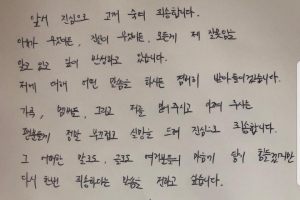 앞서 진심으로 고개 숙여 죄송합니다.
이유가 무엇이든, 진실이 무엇이든, 모든게 제 잘못임을
알고 있고 깊이 반성하고 있습니다.
저에 대해 어떤 말씀을 하셔도 겸허히 받아들이겠습니다.
가족, 멤버들, 그리고 저를 믿어주시고 아껴 주시는
팬분들께 정말 부끄럽고 실망을 드려 진심으로 죄송합니다.
그 어떠한 말로도, 글로도 여러분들의 마음이 당시 힘들겠지만
다시 한번 죄송하다는 말씀을 전하고 싶습니다.